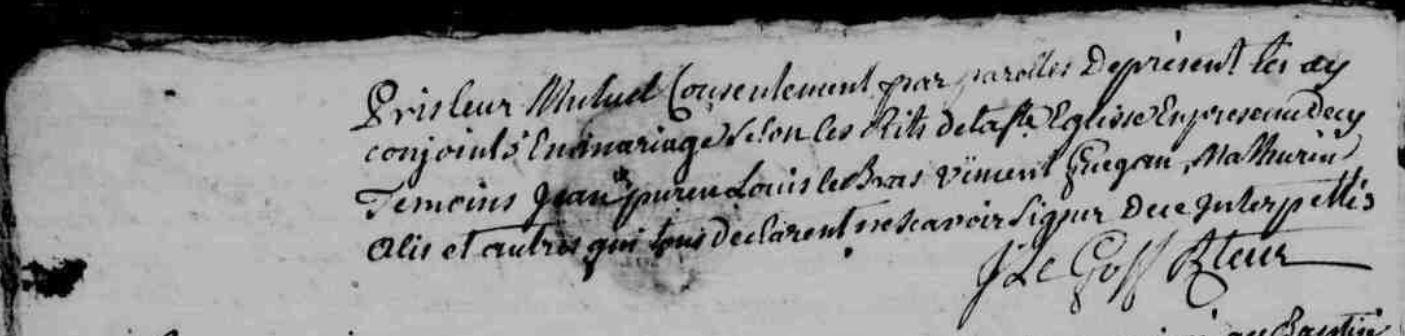 Pris leur Mutuel Consentement par parolles De présent les ay
conjoints En mariage Selon les Rits de la Ste Eglise En presence De ces
Temoins Jean puren Louis le Bras Vincent Guegan, Mathurin
Alis et autres qui tous Declarent ne scavoir Signer De ce Interpellés
J Le Goff Rteur